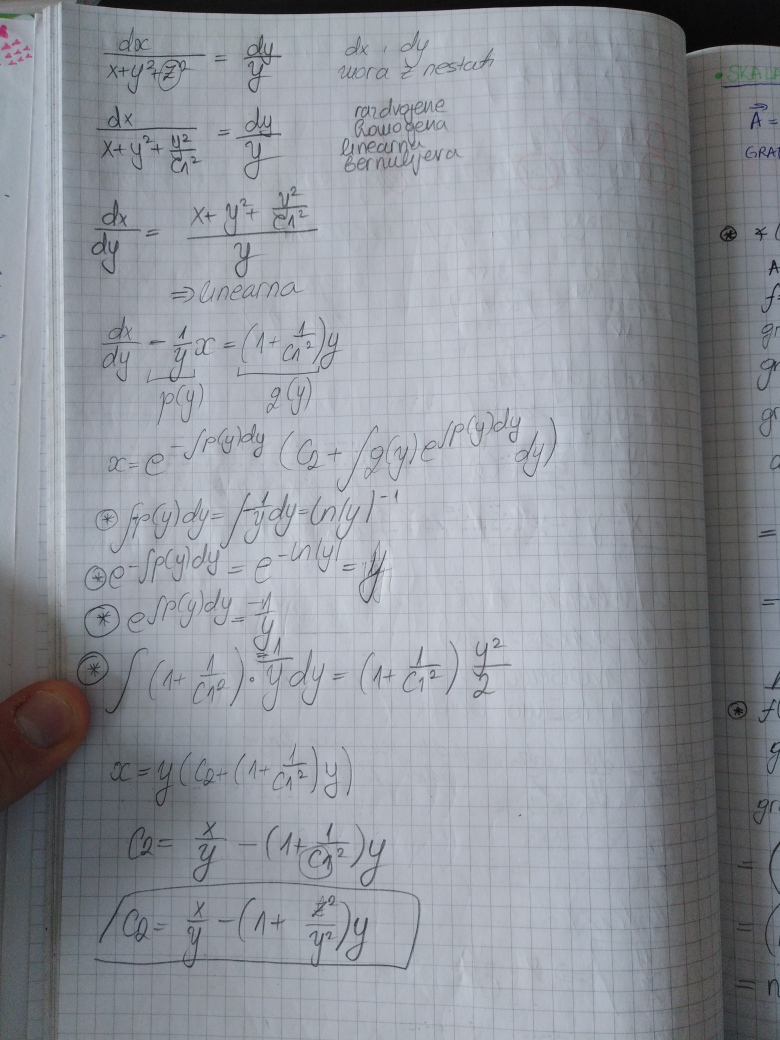 dx/(x+y²+z²) = dy/y
dx i dy
mora z nestati
dx/(x+y²+y²/C1²) = dy/y
razdvojene
homogena
linearna
Bernulijeva
dx/dy = (x+y²+y²/C1²)/y
⇒ linearna
dx/dy - 1/y x = (1+1/C1²)y
p(y) q(y)
x = e^(-∫p(y)dy) (C2 + ∫q(y) e^(∫p(y)dy) dy)
* ∫p(y)dy = ∫-1/y dy = ln|y|^-1
* e^(-∫p(y)dy) = e^(-ln|y|) = y
* e^(∫p(y)dy) = -1/y
* ∫(1+1/C1²)·-1/y dy = (1+1/C1²) y²/2
x = y(C2+(1+1/C1²)y)
C2 = x/y - (1+1/C1²)y
C2 = x/y - (1+z²/y²)y
SKALA
A =
GRAD